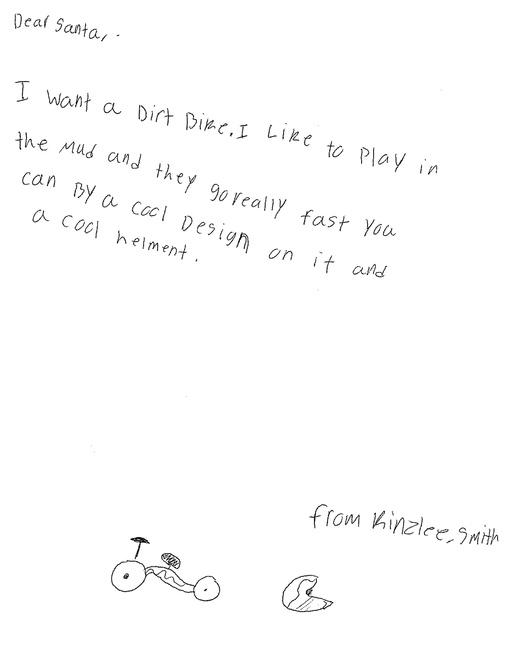 Dear Santa,.
I want a Dirt Bike. I Like to Play in
the Mud and they go really fast You
can By a cool Design on it and
a cool helment.
from Kinzlee, Smith